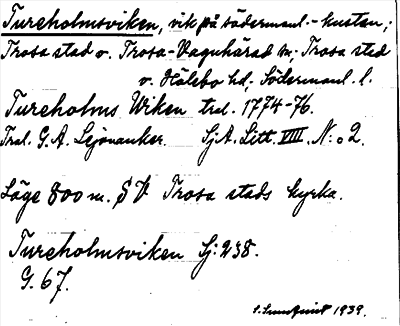 Tureholmsviken, vik på södermanl.-kusten;
Trosa stad o. Trosa-Vagnhärad sn; Trosa stad
o. Hölebo hd; Södermanl. l.
Tureholms Wiken tral. 1774-76.
Tral. G. A. Lejonanker. Sj A. Litt. VIII. N:o 2.
Läge 800 m. SV Trosa stads kyrka.
Tureholmsviken Sj: 238.
G. 67.
S. Sundquist 1939.